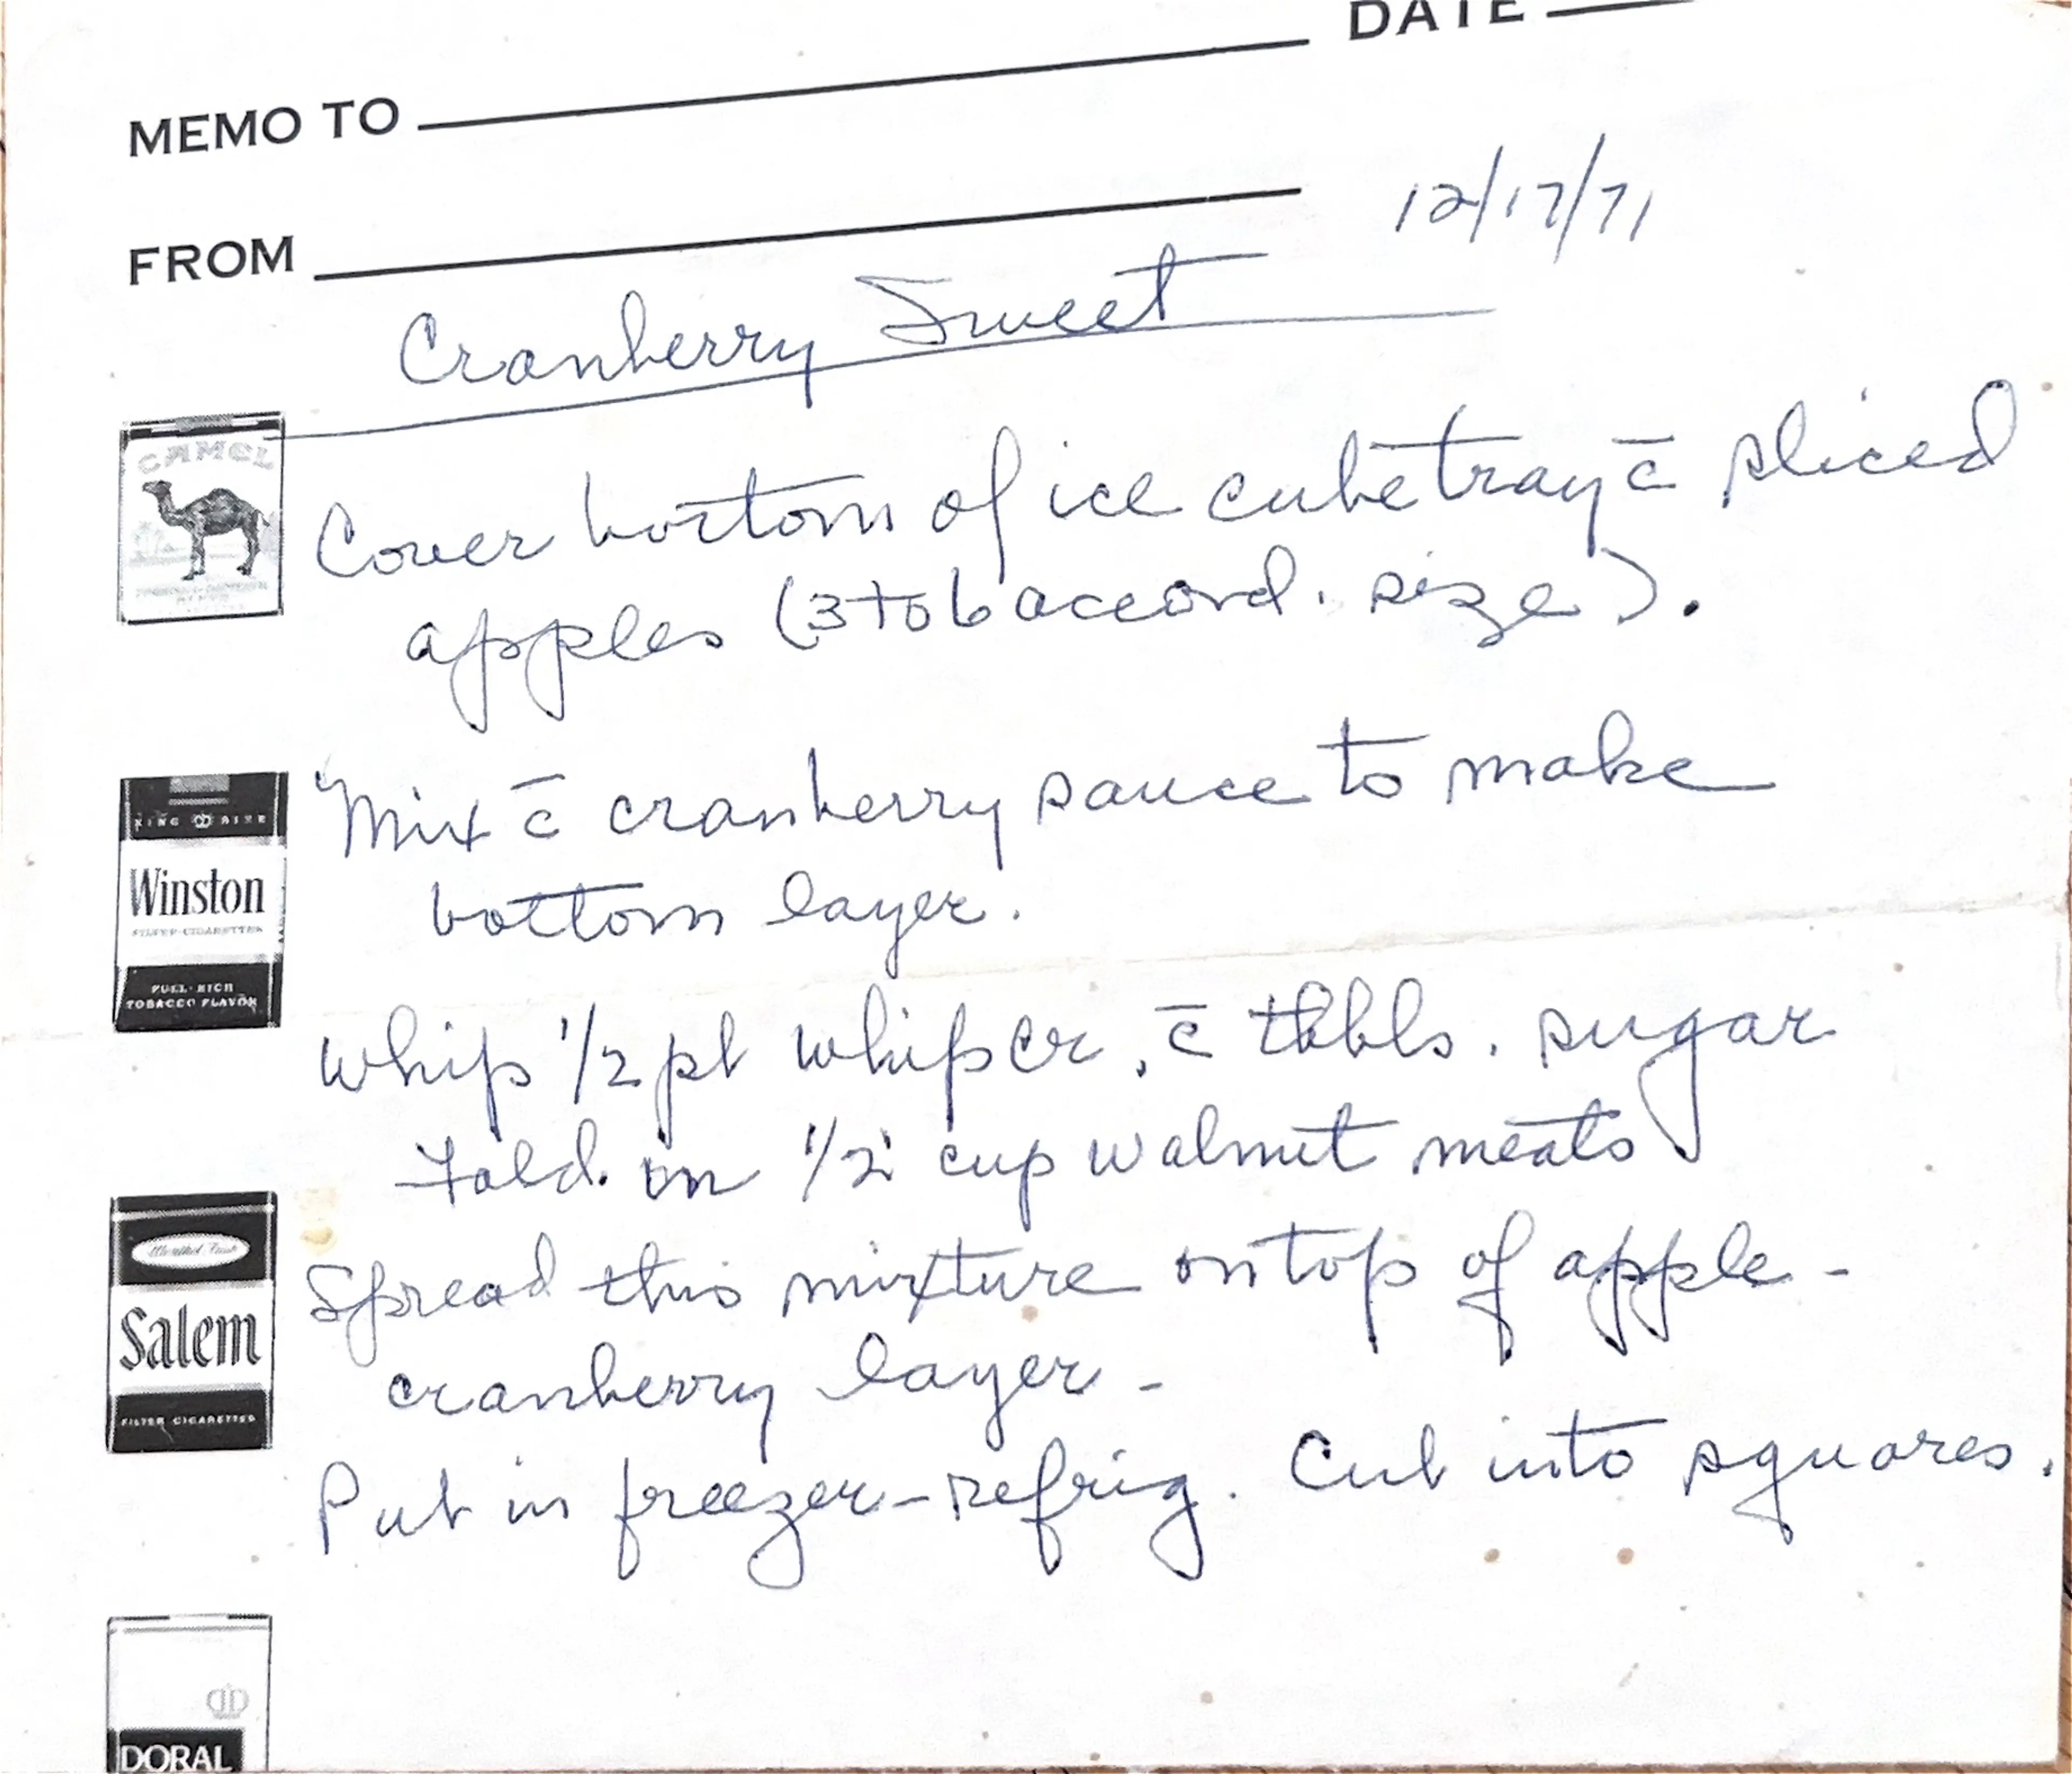 DATE
MEMO TO
FROM
12/17/71
Cranberry Sweet
CAMEL
Cover bottom of ice cube tray c̄ sliced
apples (3 to 6 accord. size).
KING SIZE
Winston
FILTER-CIGARETTES
FULL-RICH
TOBACCO FLAVOR
Mix c̄ cranberry sauce to make
bottom layer.
Whip 1/2 pt whip cr, c̄ tbbls. sugar
Fold in 1/2 cup walnut meats
Menthol Fresh
Salem
FILTER CIGARETTES
Spread this mixture on top of apple -
cranberry layer -
Put in freezer-refrig. Cut into squares.
DORAL